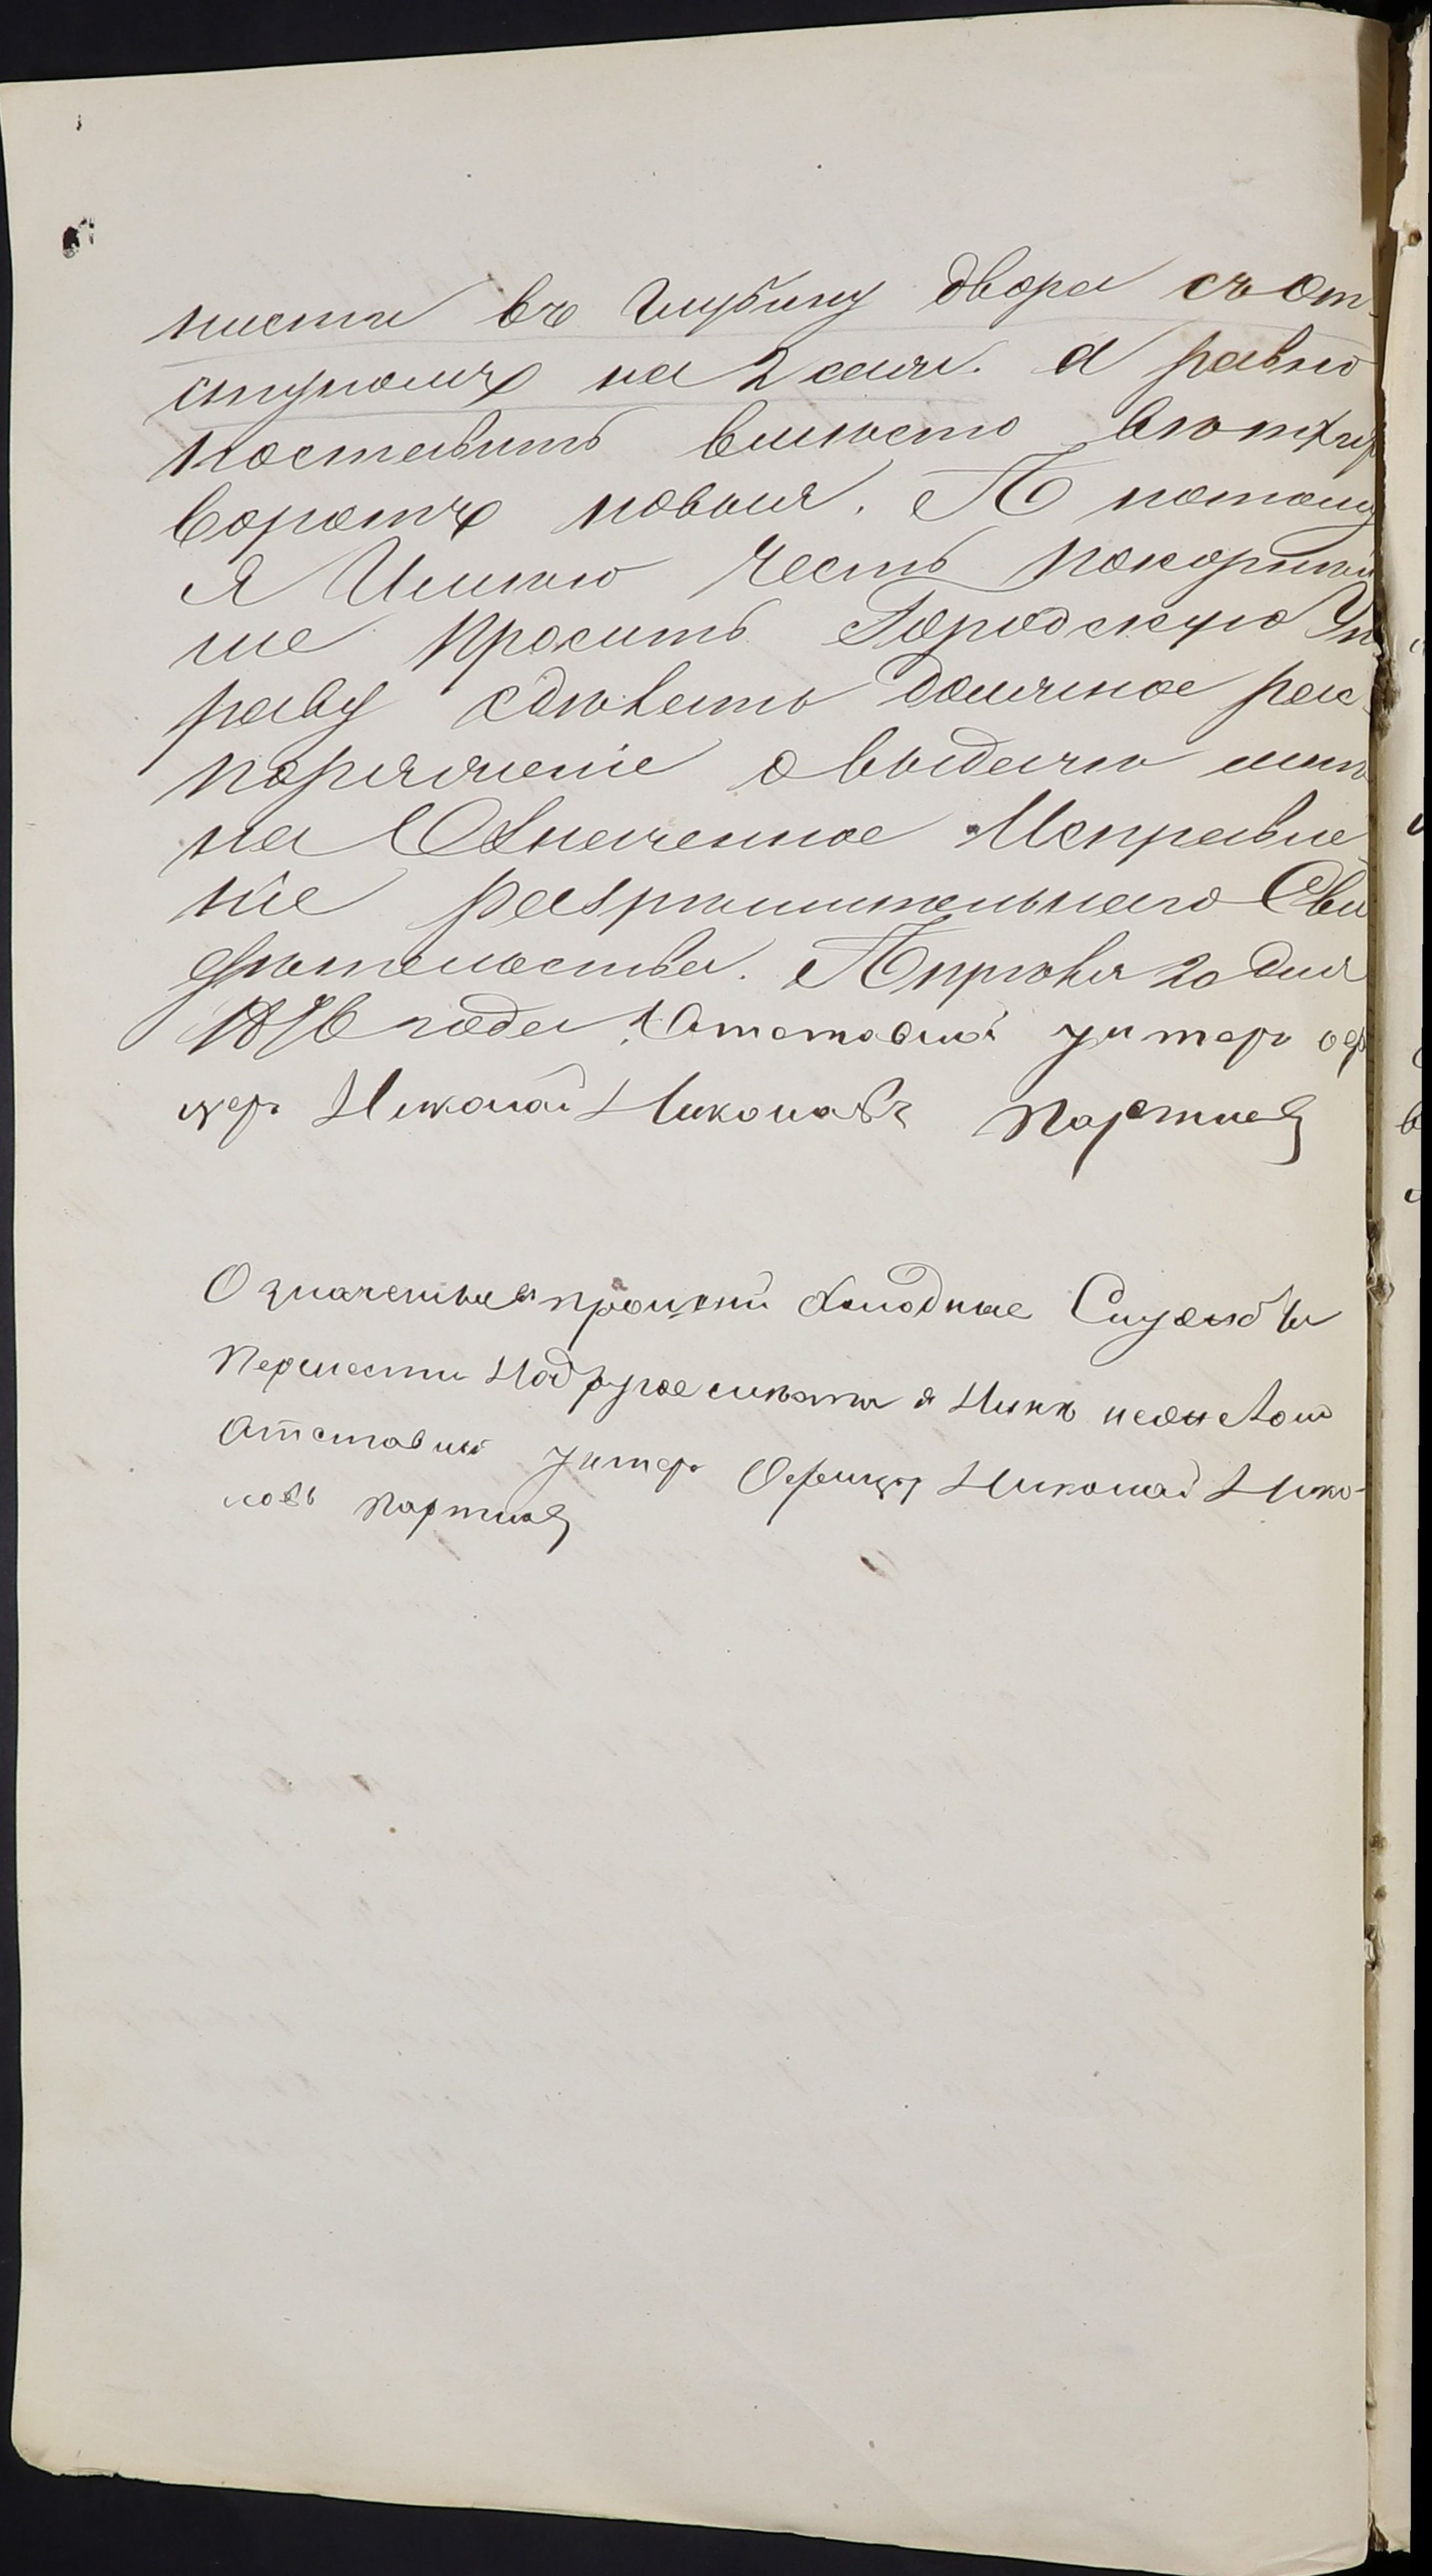 нисти въ глубину двора съ от-
ступомъ на 2 саж. а равно
поставить вмѣсто ветхи
воротъ новыя. А потому
я Имѣю честь покорнѣй
ше просить Городскую Уп
раву сдѣлать должное рас-
поряженіе о выдачѣ мнѣ
на Означенное Исправле
ніе разрѣшительнаго Сви
дѣтельства. Апрѣля 20 дня
1876 года. Отставной унтеръ оф
церъ Николай Николаевъ
Означенные холодные Службы
Перенести На другое мѣсто я
Отставной унтеръ Офицеръ Николай Нико-